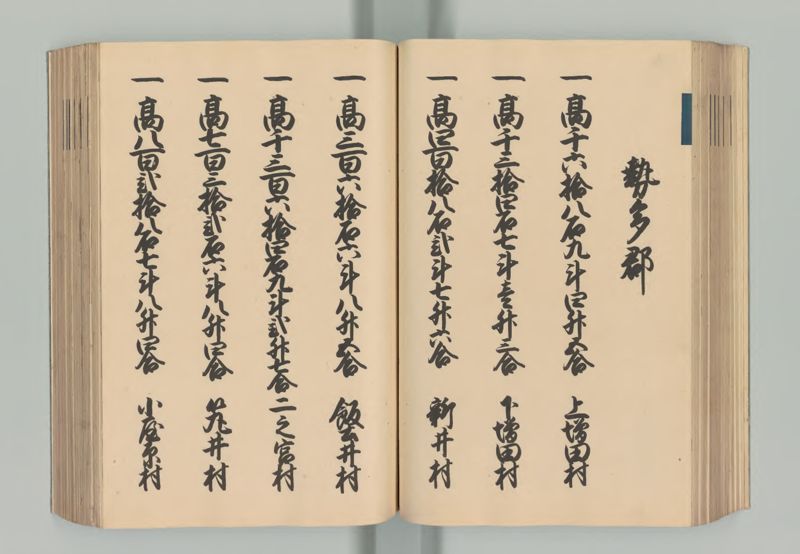 勢多郡
一 高千六拾八石九斗四升五合 上増田村
一 高千三拾四石七斗壱升三合 下増田村
一 高四百拾八石弐斗七升六合 新井村
一 高三百六拾石六斗八升五合 飯土井村
一 高千三百六拾四石九斗弐升七合 二之宮村
一 高七百三拾弐石六斗八升四合 筑井村
一 高八百弐拾八石七斗八升四合 小屋原村